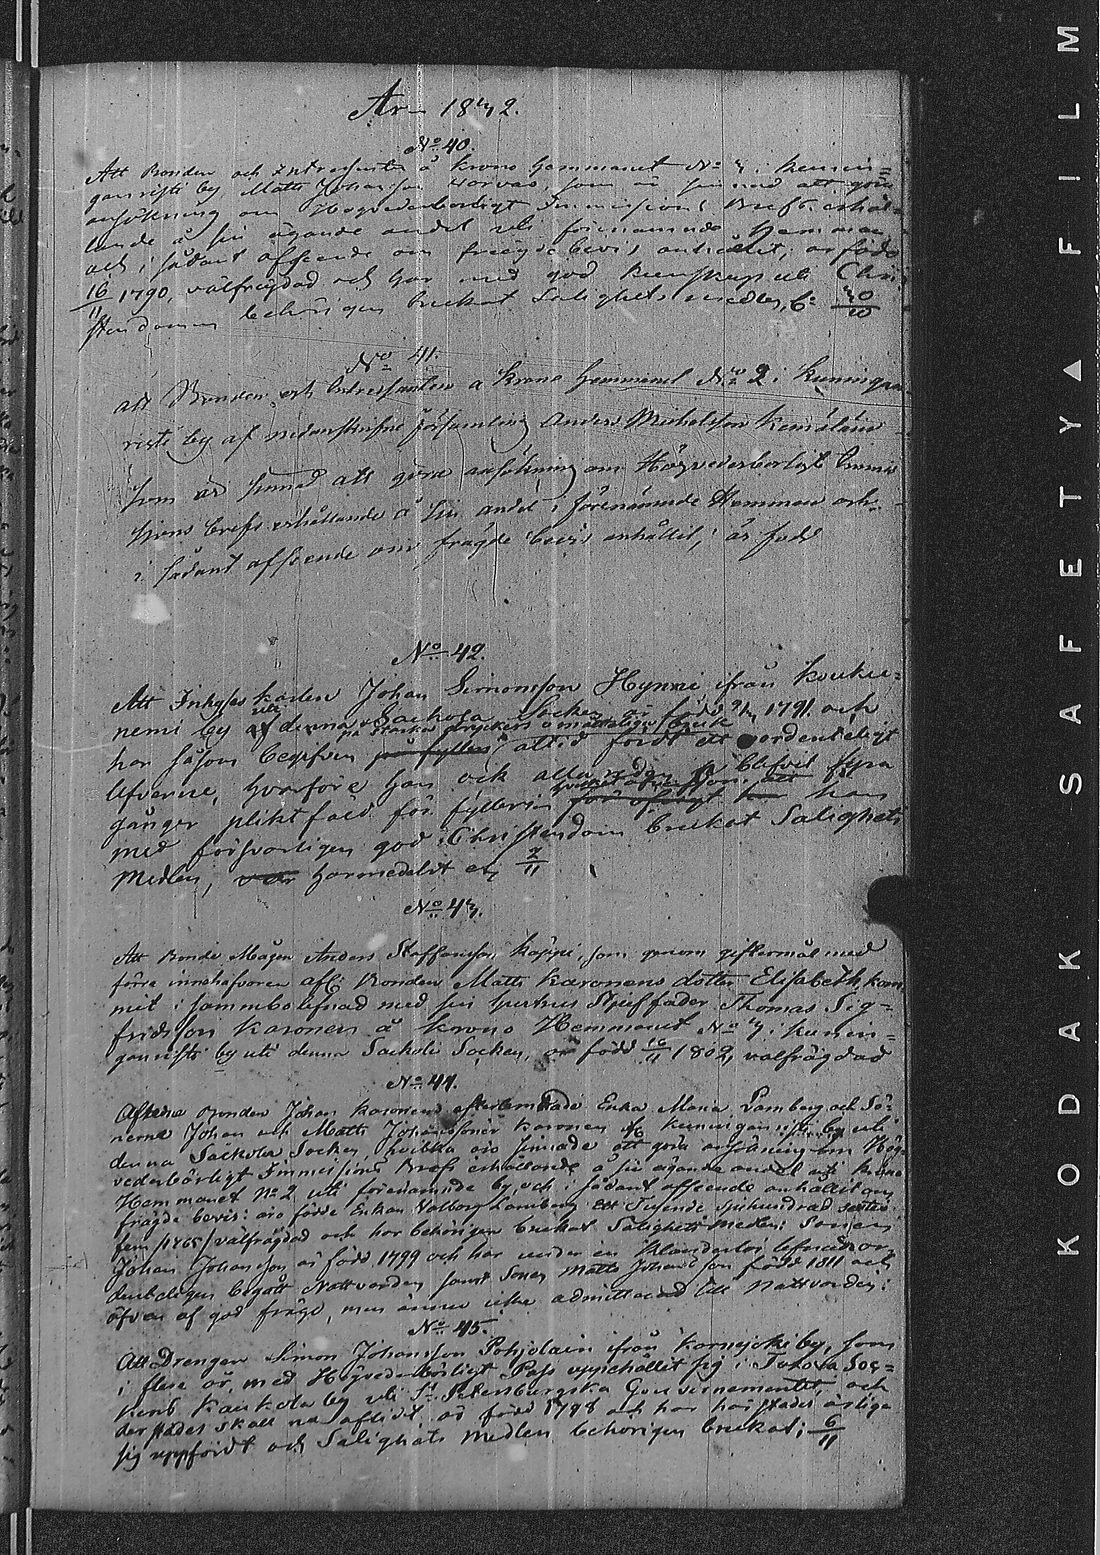 År 1832.
No 40.
Att Bonden och Intressenten å Krono Hemmanet No 3 i Kunin=
ganristi by Matts Johansson Korvas, som är sinnad att göra
ansökning om Högvederbörligt Immissions Brefs erhål=
lande å sin ägande andel uti förenämnde Hemman
och i sådant afseende om frägde bevis anhållit; är född
16/11 1790, välfrägdad och har med god kunskap uti Chri=
stendomen behörigen brukat Salighets medlen, b: 30/10
No 41.
att Bonden och Intressenten å Krono Hemmanet No 2 i Kuningan
risti by af nedanskrifne församling Anders Michelsson Kemäläin
som är sinnad att göra ansökning om Högvederbörligt Immis
sions brefs erhållande å sin andel i förenämnde Hemman och
i sådant afseende om frägde bevis anhållit, är född
No 42.
Att Inhyses karlen Johan Simonsson Hynni ifrån Kouku=
niemi by uti denna Sackola Socken är född 1791 och
har såsom begifven på starka dryckers omåttliga bruk alltid fördt ett ovordenteligt
lefverne, hvarföre han ock blifvit fyra
gånger pliktfäld för fylleri han
med försvarligen god Christendom brukat Salighets
Medlen, harmedelst 2/11
No 43.
Att Bonde Mågen Anders Staffansson Käppi, som genom giftermål med
förre innehafvaren af Bonden Matts Karonens dotter Elisabeth kom
mit i sammbolefnad med sin hustrus Stjuffader Thomas Sig=
fridsson Karonen å Krono Hemmanet No 3 i Kunin=
ganristi by uti denna Sackola Socken, är född 16/11 1802, välfrägdad
No 44.
Aflidne Bonden Johan Karonens efterlemnade Enka Maria Lamberg och Sö=
nerne Johan och Matts Johanssöner Karonen af Kuninganristi by uti
denna Sackola Socken, hvilka äro sinnade att göra ansökning om Hög=
vederbörligt Immissions Brefs erhållande å sin ägande andel uti Krono
Hemmanet No 2 uti förenämnde by och i sådant afseende anhållit om
frägde bevis: äro förre Enkan Valborg Lamberg Ett Tusende sjuhundrad sextio
fem /1765/ välfrägdad och har behörigen brukat Salighets medlen: Sonen
Johan Johansson är född 1799 och har under en klanderlös lefnad or
dentligen begått Nattvarden samt Sonen Matts Johansson född 1811 och
äfven af god frägd, men ännu icke admitterad till Nattvarden:
No 45.
Att Drengen Simon Johansson Pohjolain ifrån Karnajoki by, som
i flere år, med Högvederbörligt Pass uppehållit sig i Toksova Soc=
kens Kaukola by uti St Petersburgska Gouvernementet, och
derstädes skall nu aflidit, är född 1798 och har härstädes ärliga
sig uppfördt och Salighets Medlen behörigen brukat; 6/11
KODAK SAFETY FILM